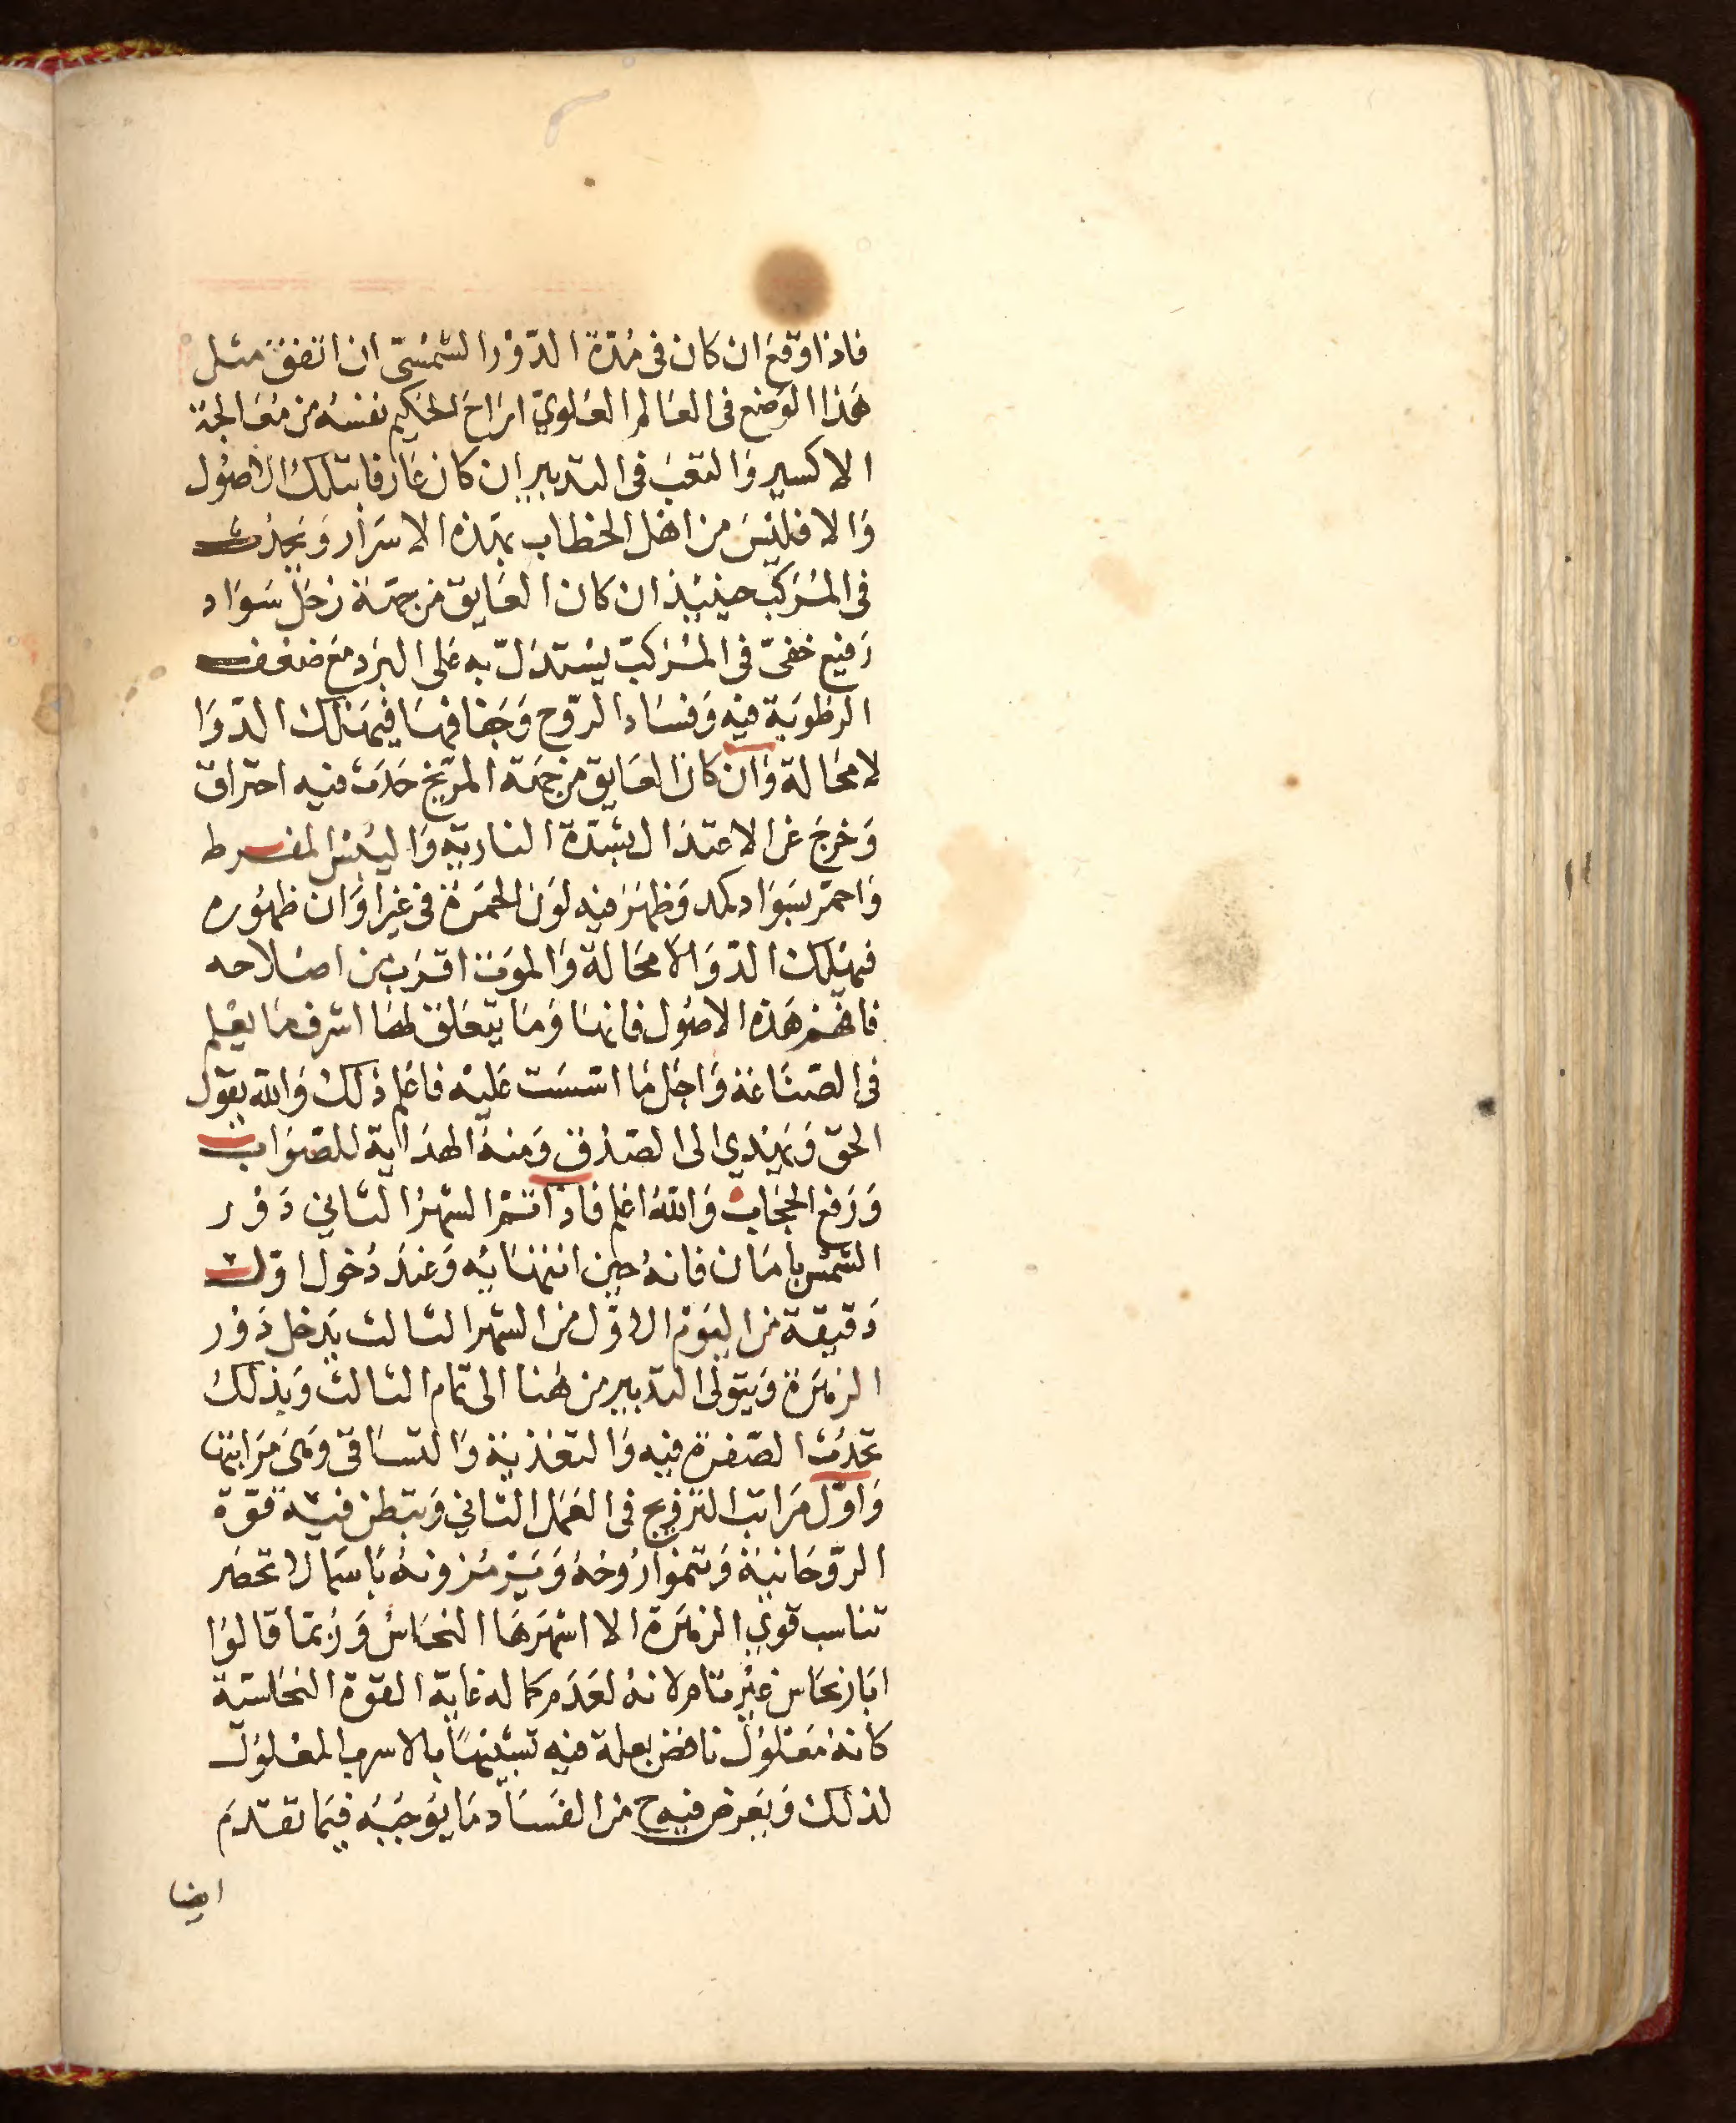 فاذا وقع ان كان فى مُدّة الدّوْر الشمسّى ان اتفق مثل
هَذا الوَضع فى العَالم العُلوىّ ارَاحَ الحكيم نفسهُ من مُعَالجة
الاكسير وَالتعبَ فى التدبير ان كان عَارفا بتلكَ الاصُول
وَالا فليْسَ من اهْل الخطاب بهَذه الاسرَار وَيَحْدُث
فى المُرَكبّ حينئِذ ان كان العَايق من جهَة زحَل سَوَاد
رَفيع خفىّ فى المُرَكبّ يسْتدَلّ به عَلى البَرد مَع ضعْف
الرطوُبَة فيْه وَفسَاد الرّوح وَجَفافهَا فيَهْلك الدّوَا
لا محَالة وَان كان العَايق من جهَة المرّيخ حَدَث فيه احتراق
وَخرجَ عَن الاعتدَال بشدّة الناريّة وَاليُبْس المفرط
وَاحمرّ بسَوَاد كمد وَظهَرَ فيْه لوَن الحُمرَة فى غيْر اوَان ظهوُره
فيهَلك الدّوَا لا محَالة وَالموَت اقرَب من اصْلاحه
فافهَمْ هَذه الاصُول فانهَا وَمَا يتعَلق لهَا اشرف مَا يعْلم
فى الصّنَاعَة وَاجَل مَا اسّسَت عَليْه فاعْلم ذلكَ وَالله يقوُل
الحق وَيَهْدي الى الصّدْق وَمنهُ الهدَاية للصّوَاب
وَرَفع الحجَابْ وَاللهُ اعْلم فاذا تمّ الشهرُ الثاني دَوْر
الشمْس بامَان فانهُ حين انتهَايه وَعندَ دُخول اوّل
دَقيقة من اليَوْم الاوّل من الشهر الثالث يَدخل دَوْر
الزهَرَة وَيتولىَ التدبير من هُنا الى تمام الثالث وَبذلكَ
تحدُث الصّفرَة فيه وَالتغذية وَالتسَاقى وَهىَ مَرَاتبهَا
وَاوّل مَرَاتب التزوْيج فى العَمَل الثاني وَيتبطن فيْه قوّة
الرّوحَانيَة وَتنموا رُوحُهُ وَيَرْمُزونهُ باسمَا لا تحصَر
تناسب قوي الزهَرة الا اشهَرهَا النحَاسُ وَرُبمَا قالوُا
ابَار نحَاس غيْر تام لانهُ لعَدَم كمَاله غاية القوّة النحَاسيّة
كانهُ مَعْلوُل ناقص بعلة فيه تشبيْهًا بالاسرب المعْلوُل
لذلكَ وَيَعرض فيه ح من الفسَاد مَا يوُجبَهُ فيَما تقدّمَ
ايضا